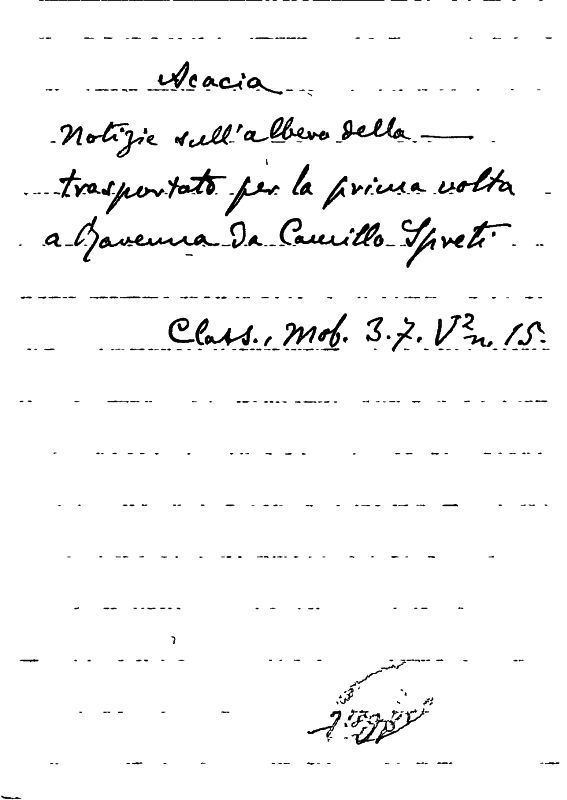 Acacia
Notizie sull'albero della —
trasportato per la prima volta
a Ravenna da Camillo Spreti
Class., Mob. 3.7. V² n. 15.